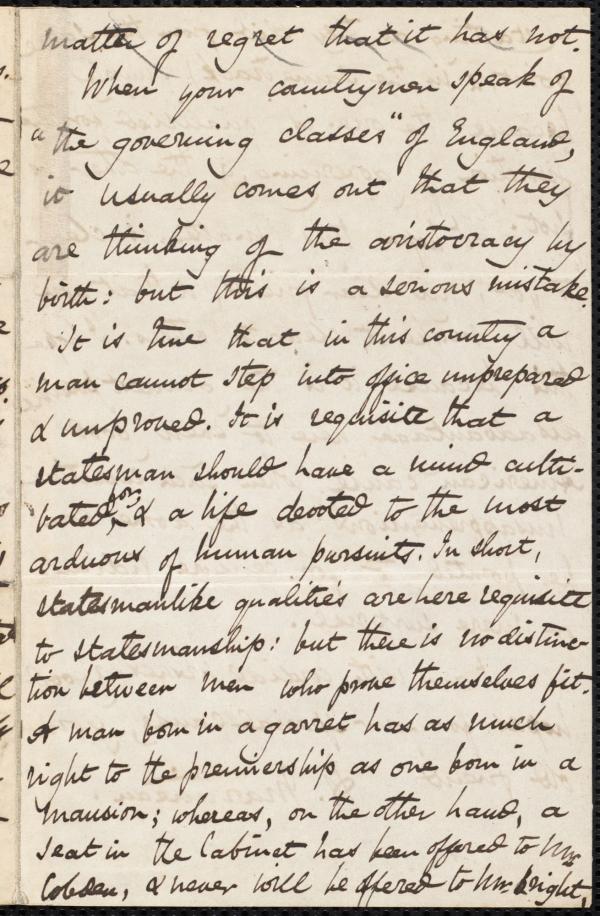 matter of regret that it has not.
When your countrymen speak of
"the governing classes" of England,
it usually comes out that they
are thinking of the aristocracy by
birth: but this is a serious mistake.
It is true that in this country a
man cannot step into office unprepared
& unproved. It is requisite that a
statesman should have a mind culti-
vated for, & a life devoted to the most
arduous of human pursuits. In short,
statesmanlike qualities are here requisite
to statesmanship: but there is no distinc-
tion between men who prove themselves fit.
A man born in a garret has as much
right to the premiership as one born in a
mansion; whereas, on the other hand, a
seat in the Cabinet has been offered to Mr
Cobden, & never will be offered to Mr Bright,